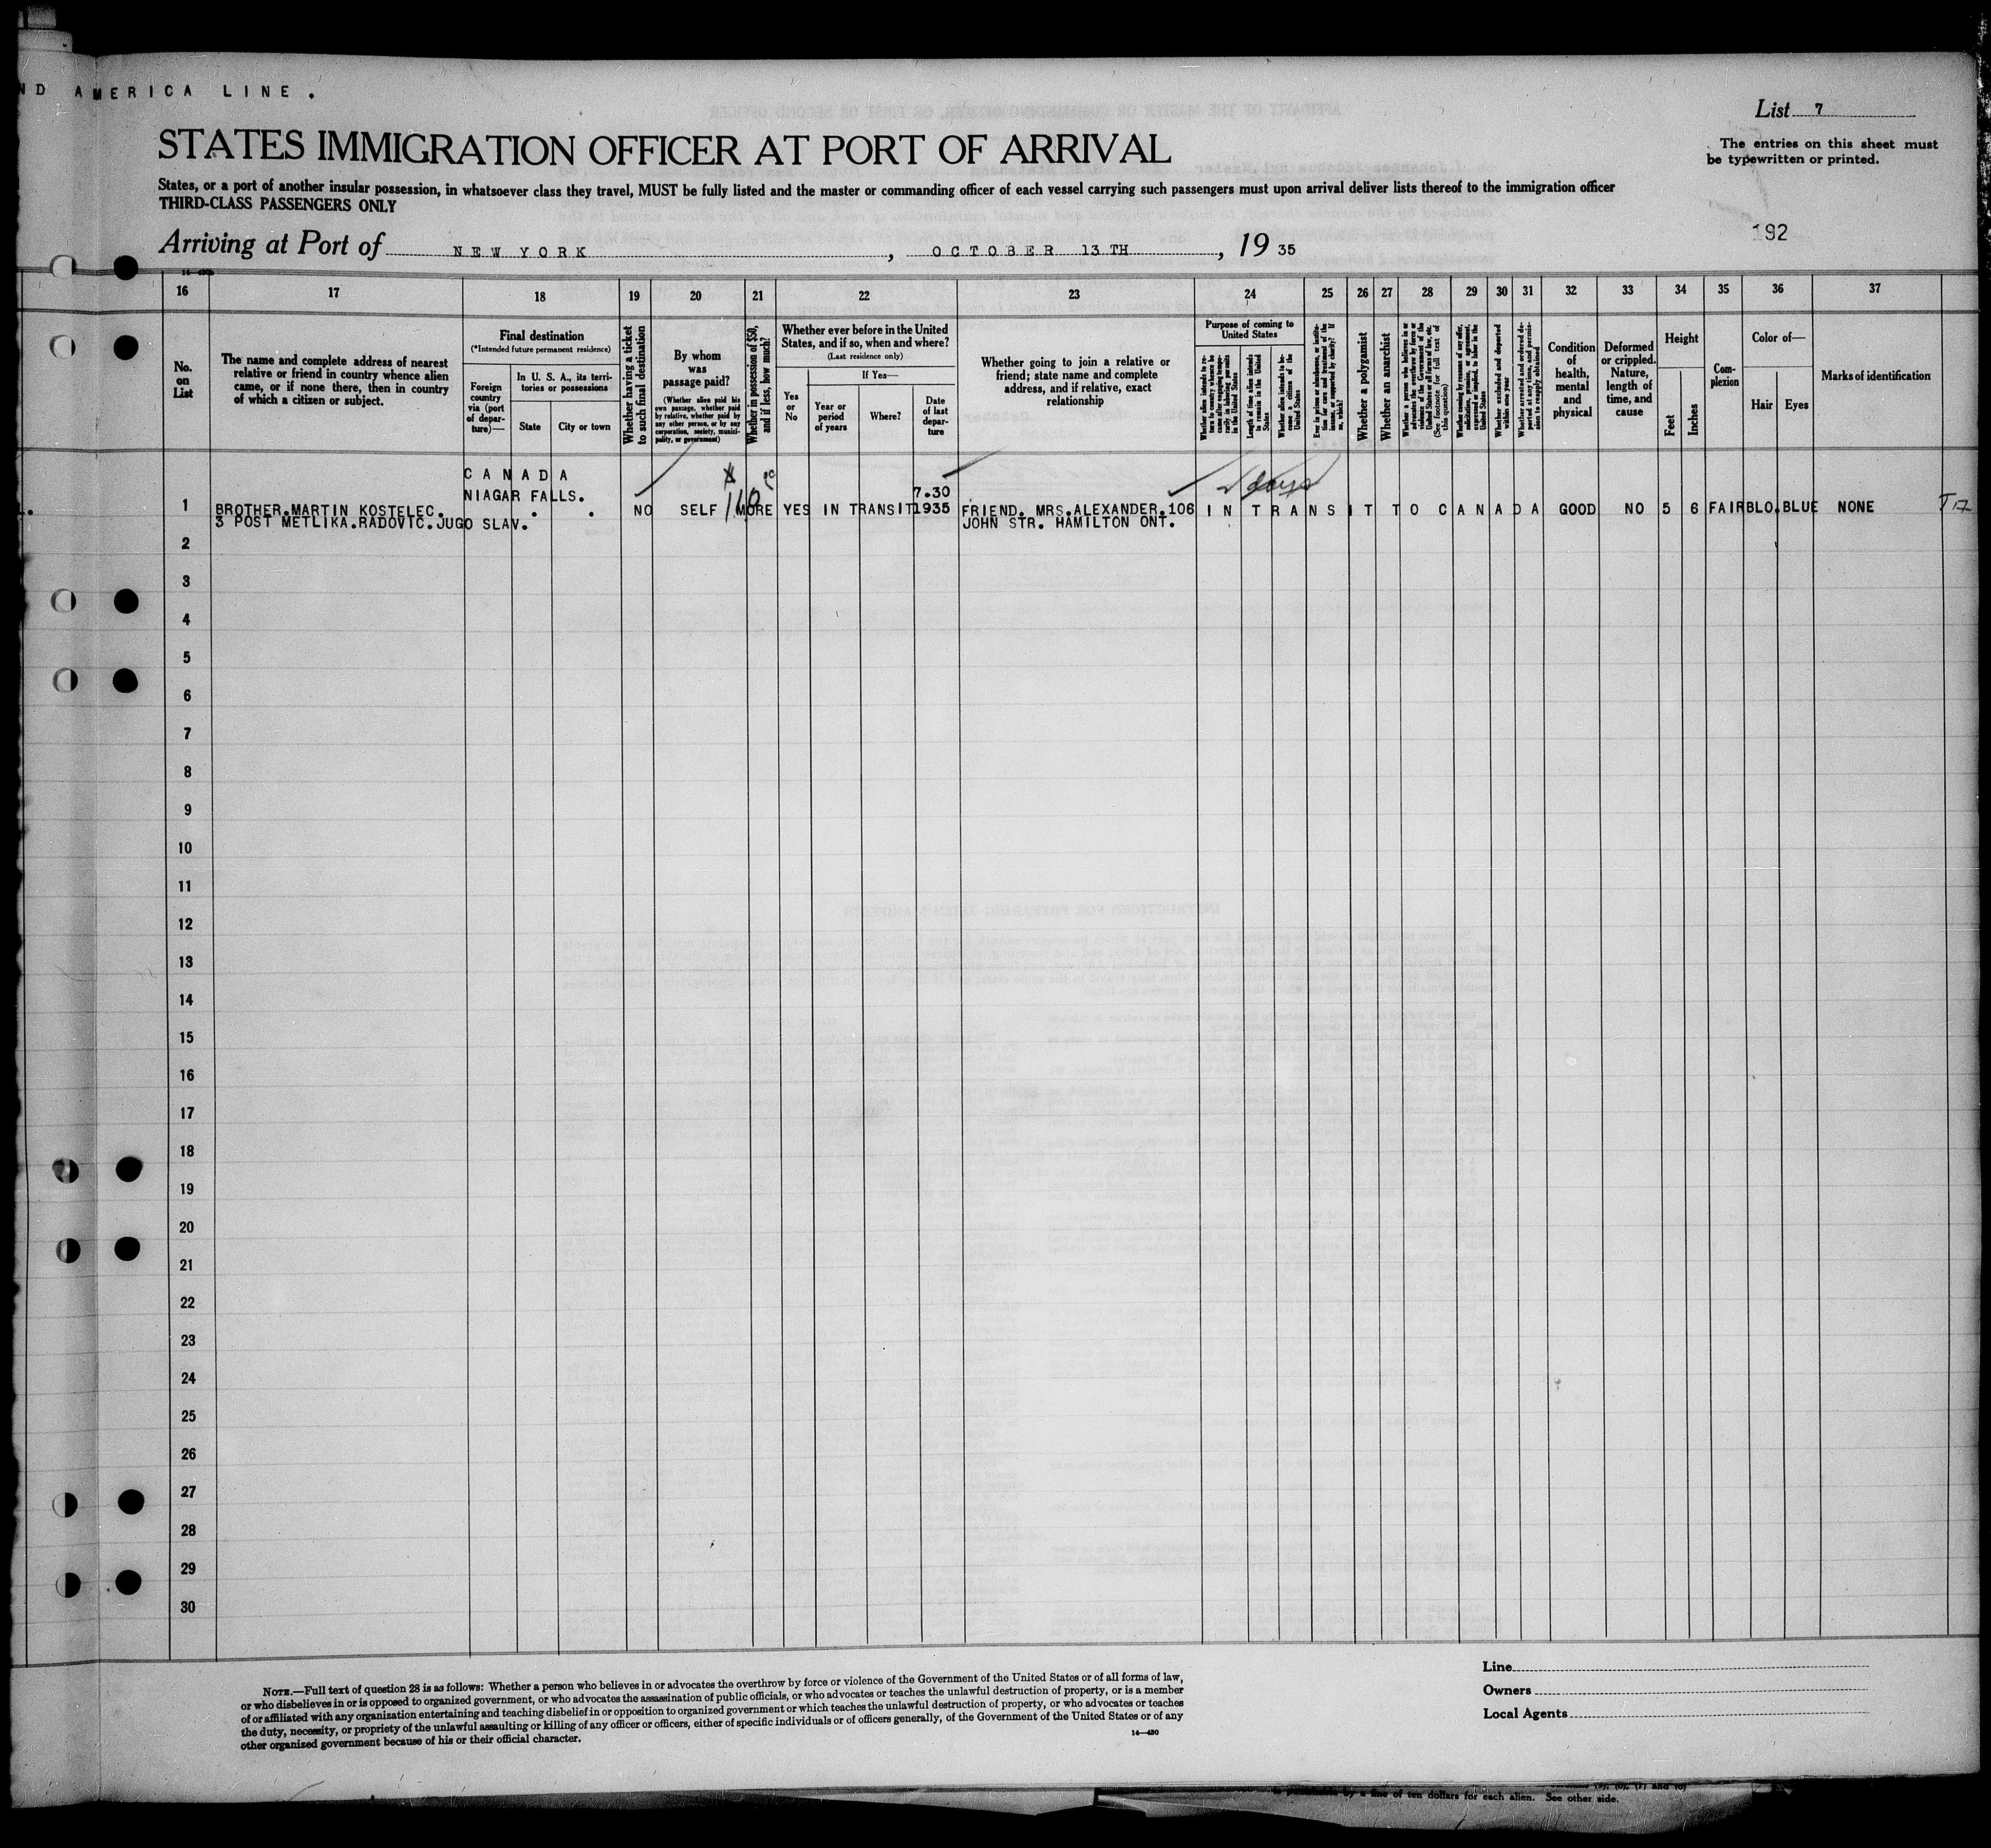 ND AMERICA LINE.
List 7
STATES IMMIGRATION OFFICER AT PORT OF ARRIVAL
The entries on this sheet must
be typewritten or printed.
States, or a port of another insular possession, in whatsoever class they travel, MUST be fully listed and the master or commanding officer of each vessel carrying such passengers must upon arrival deliver lists thereof to the immigration officer
THIRD-CLASS PASSENGERS ONLY
192
Arriving at Port of NEW YORK, OCTOBER 13 TH, 19 35
16 17 18 19 20 21 22 23 24 25 26 27 28 29 30 31 32 33 34 35 36 37
No.
on
List
The name and complete address of nearest
relative or friend in country whence alien
came, or if none there, then in country
of which a citizen or subject.
Final destination
(*Intended future permanent residence)
Foreign
country
via (port
of depar-
ture)—
In U. S. A., its terri-
tories or possessions
State
City or town
Whether having a ticket
to such final destination
By whom
was
passage paid?
(Whether alien paid his
own passage, whether paid
by relative, whether paid by
any other person, or by any
corporation, society, munici-
pality, or government)
Whether in possession of $50,
and if less, how much?
Whether ever before in the United
States, and if so, when and where?
(Last residence only)
Yes
or
No
If Yes—
Year or
period
of years
Where?
Date
of last
depar-
ture
Whether going to join a relative or
friend; state name and complete
address, and if relative, exact
relationship
Purpose of coming to
United States
Length of time alien intends
to remain in the United
States
Whether alien intends to be-
come a citizen of the
United States
Whether a polygamist
Whether an anarchist
(See footnote for full text of
this question)
Whether excluded and deported
within one year
Condition
of
health,
mental
and
physical
Deformed
or crippled.
Nature,
length of
time, and
cause
Height
Feet
Inches
Com-
plexion
Color of—
Hair
Eyes
Marks of identification
CANADA
NIAGAR FALLS.
7.30
2 days
1 BROTHER.MARTIN KOSTELEC. . . NO SELF MORE YES IN TRANSIT 1935 FRIEND. MRS.ALEXANDER.106 IN TRANSIT TO CANADA GOOD NO 5 6 FAIR BLO.BLUE NONE
3 POST METLIKA.RADOVIC.JUGO SLAV. JOHN STR. HAMILTON ONT.
2
3
4
5
6
7
8
9
10
11
12
13
14
15
16
17
18
19
20
21
22
23
24
25
26
27
28
29
30
NOTE.—Full text of question 28 is as follows: Whether a person who believes in or advocates the overthrow by force or violence of the Government of the United States or of all forms of law,
or who disbelieves in or is opposed to organized government, or who advocates the assassination of public officials, or who advocates or teaches the unlawful destruction of property, or is a member
of or affiliated with any organization entertaining and teaching disbelief in or opposition to organized government or which teaches the unlawful destruction of property, or who advocates or teaches
the duty, necessity, or propriety of the unlawful assaulting or killing of any officer or officers, either of specific individuals or of officers generally, of the Government of the United States or of any
other organized government because of his or their official character.
14—430
Line
Owners
Local Agents
of ten dollars for each alien. See other side.